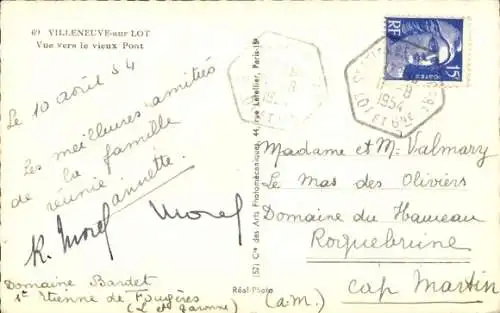 69 VILLENEUVE-sur LOT
Vue vers le vieux Pont
Le 10 août 54
Les meilleures amitiés
de la famille
réunie.
annette.
K. Morel
Morel
Domaine Bardet
St Etienne de Fougères
(L et garonne)
(57) Cie des Arts Photomécaniques, 44, rue Letellier, Paris-15e
Réal-Photo
RF
15F
POSTES
1954
LOT ET GNE
Madame et M. Valmary
Le Mas des Oliviers
Domaine du Hameau
Roquebrune
Cap Martin
(a.m.)